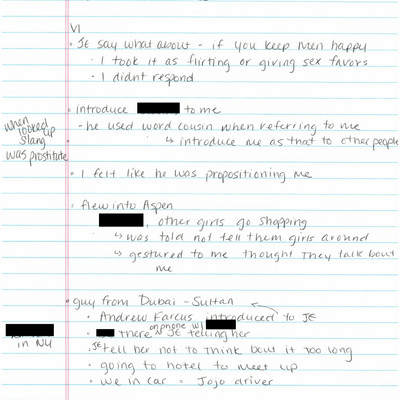 VI
· JE say what about - if you keep men happy
· I took it as flirting or giving sex favors
- I didnt respond
· introduce to me
- he used word cousin when referring to me
when looked up slang was prostitute
↳ introduce me as that to other people
· I felt like he was propositioning me
· flew into Aspen
, other girls go shopping
↳ was told not tell them girls around
↳ gestured to me thought they talk bout me
· guy from Dubai - Sultan
· Andrew Farcus introduced to JE
in NY
· there on phone w/ JE telling her
· JE tell her not to think bout it too long
· going to hotel to meet up
· we in car - Jojo driver